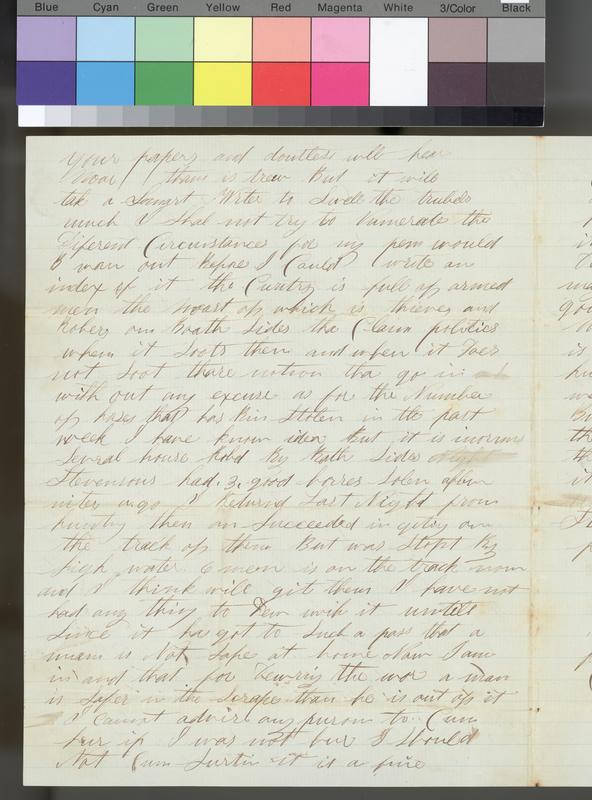 Blue Cyan Green Yellow Red Magenta White 3/Color Black
your papers and doutless will hear
moar than is trew But it will
tak a Smart Writer to Swell the trubels
much I Shal not try to numerate the
diferent Circumstances for my pen would
B worn out Before I Could write an
index of it the Cuntry is full of armed
men the moast of which is thieves and
Robers on Boath Sides the Claim polities
when it Soots them and when it Does
not Soot thare notion tha go in
with out any excuse as for the Number
of hases that has Bin Stolen in the past
week I have know idea But it is inormus
Sevral house Robd By Bath Sides
Stevensons had .3. good horses Stolen
nites ago I Returnd Last Night from
hunting them an Succeeded in giting on
the track of them But was Stopt By
high water 6 men is on the track now
and I think will git them I have not
had any thing to Dew with it untill
Since it has got to Such a pass that a
man is Not Safe at home Now I am
in and that for Dewring the wor a man
is Safer in the Scrape than he is out of it
I Cannot advise any purson to Cum
hear if I was not hear I Should
Not Cum Surtin it is a fine